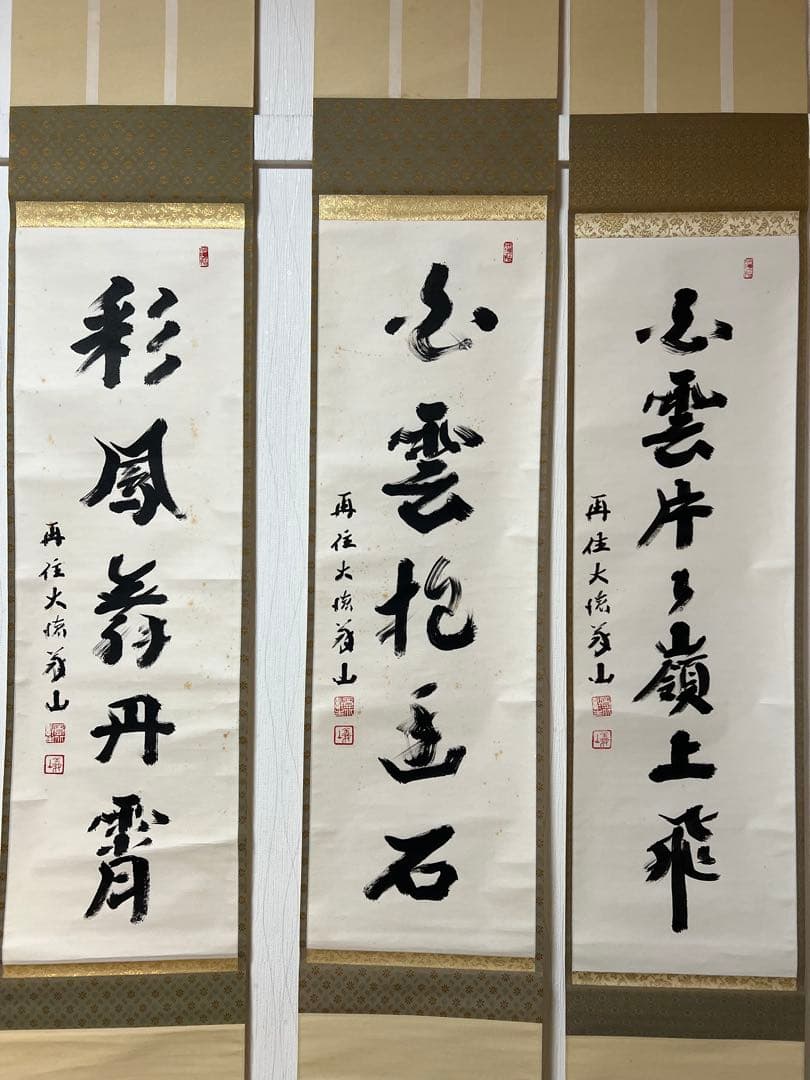 白雲片々嶺上飛
再住大徳義山
白雲抱幽石
再住大徳義山
彩鳳舞丹霄
再住大徳義山